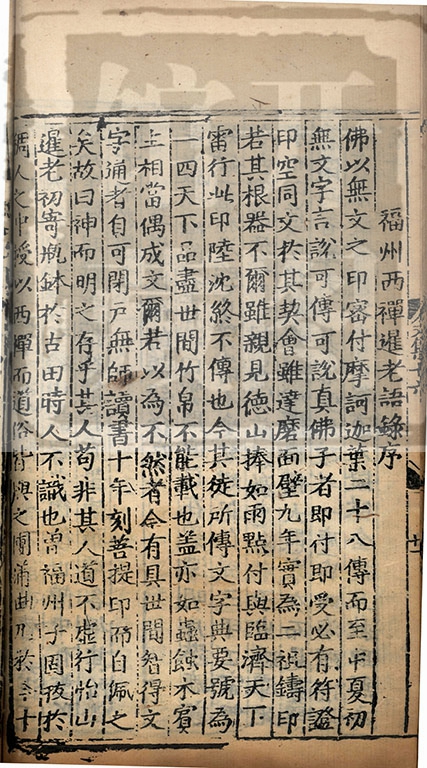 福州西禪暹老語錄序
佛以無文之印密付摩訶迦葉二十八傳而至中夏初
無文字言說可傳可說真佛子者即付即受必有符證
印空同文於其契會雖達磨面壁九年實為二祖鑄印
若其根器不爾雖親見德山捧如雨點付與臨濟天下
雷行此印陸沈終不傳也今其徒所傳文字典要號為
一四天下品盡世間竹帛不能載也蓋亦如蟲蝕木賓
主相當偶成文爾若以為不然者今有具世間智得文
字通者自可閉戶無師讀書十年刻菩提印而自佩之
矣故曰神而明之存乎其人苟非其人道不虛行怡山
暹老初寄瓶鉢於古田時人不識也曾福州子固拔於
稠人之中授以西禪而道俗